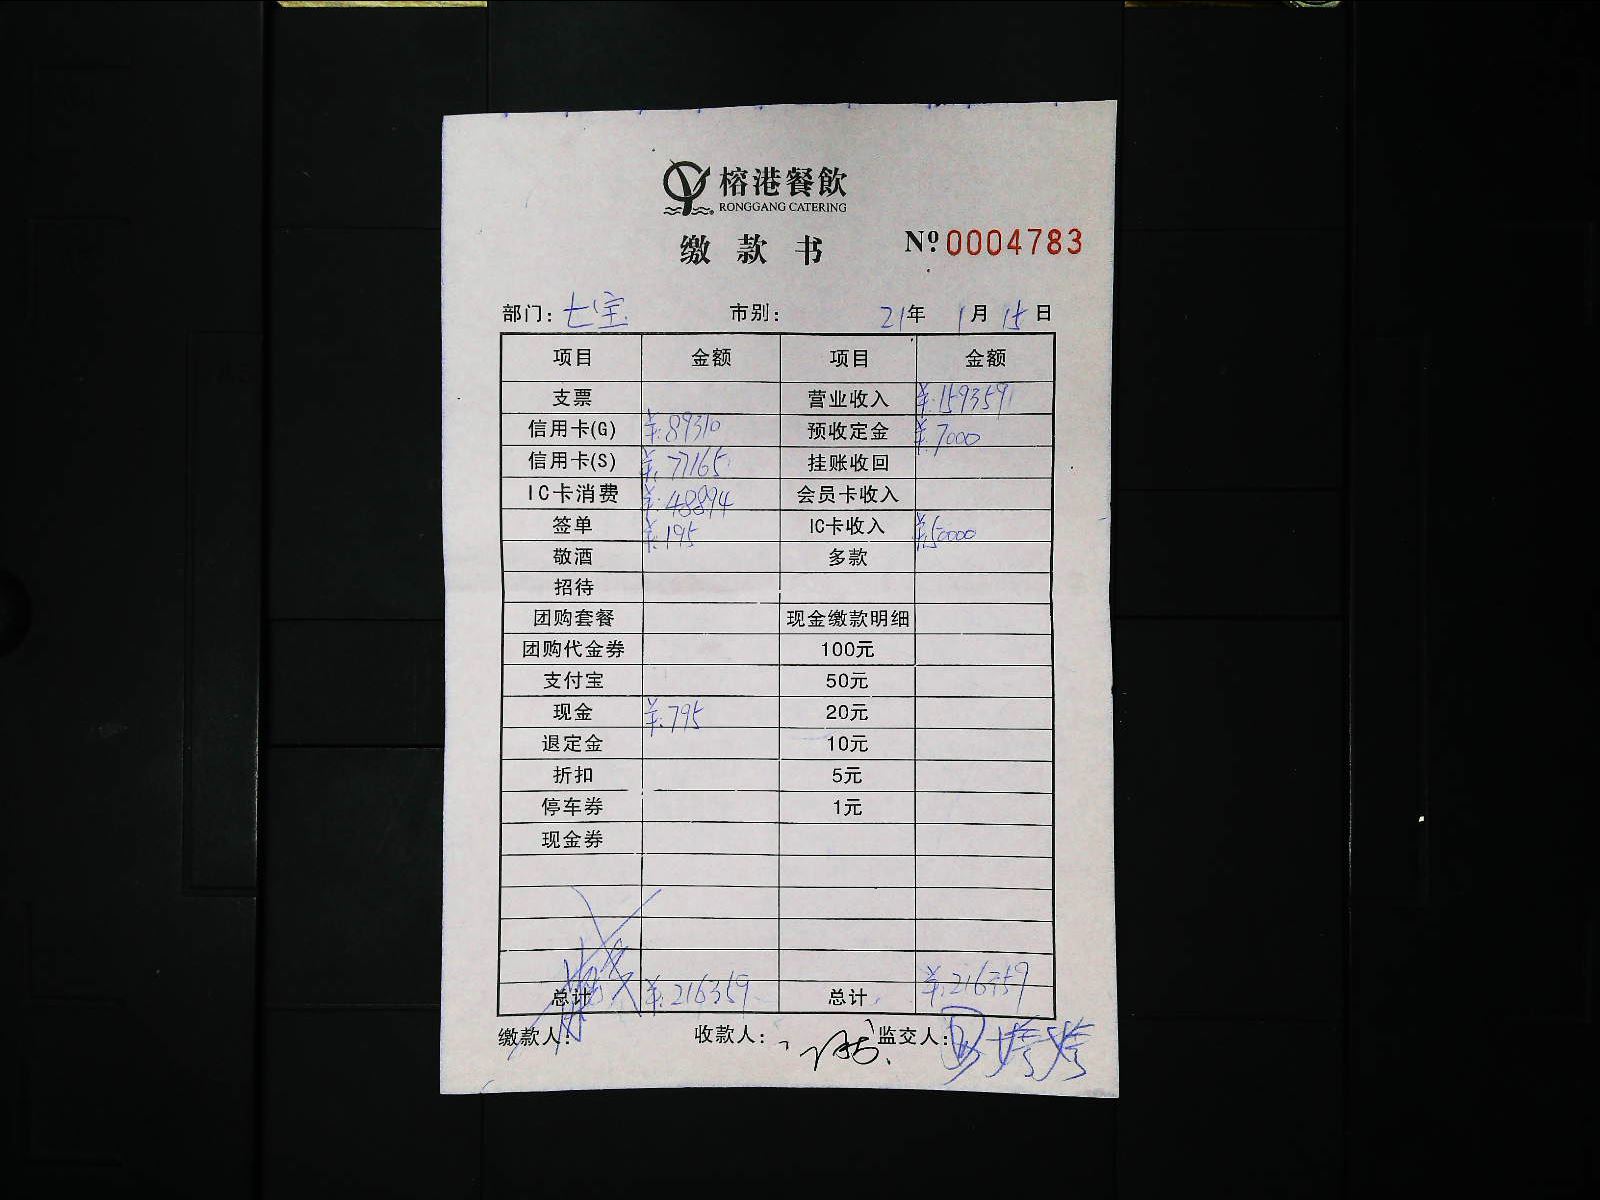 榕港餐飲
RONGGANG CATERING
缴款书 Nº 0004783
部门: 七宝 市别: 21年 1月 15日
项目 金额 项目 金额
支票 营业收入 ¥:159359
信用卡(G) ¥:89310 预收定金 ¥:7000
信用卡(S) ¥:77165 挂账收回
IC卡消费 ¥:48894 会员卡收入
签单 ¥:195 IC卡收入 ¥:50000
敬酒 多款
招待
团购套餐 现金缴款明细
团购代金券 100元
支付宝 50元
现金 ¥:795 20元
退定金 10元
折扣 5元
停车券 1元
现金券
总计 ¥:216359 总计 ¥:216359
缴款人: 收款人: 监交人: